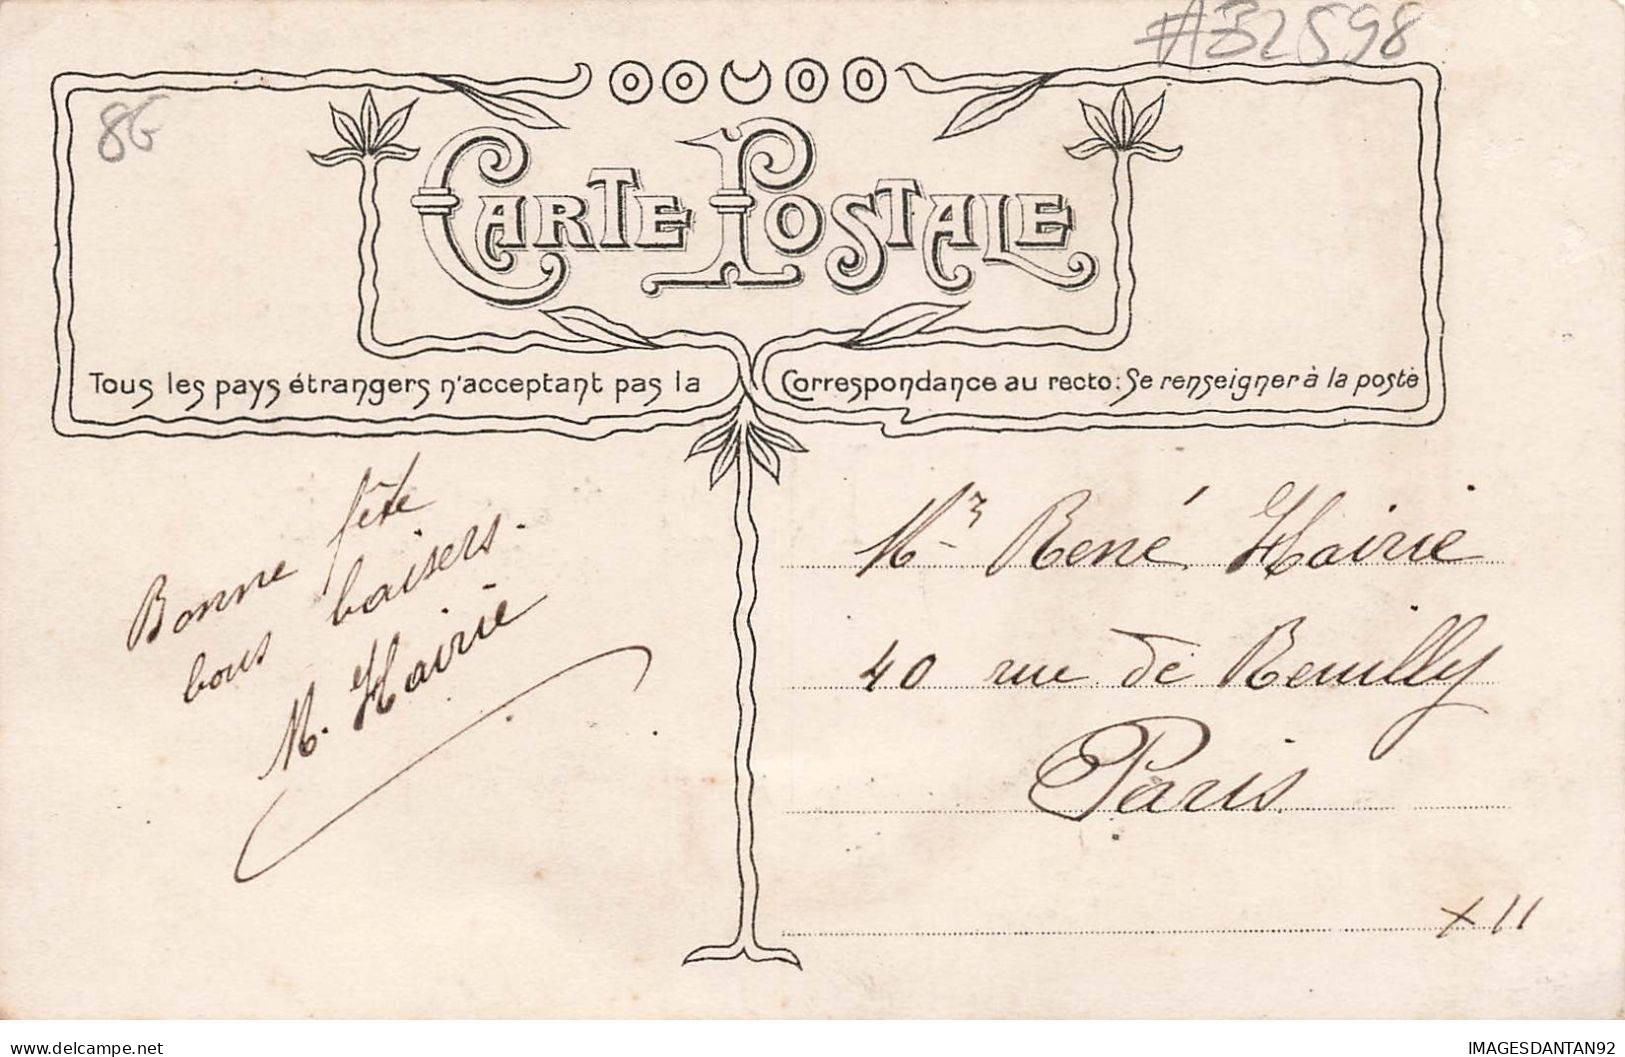 #AB2598
86
CARTE POSTALE
Tous les pays étrangers n'acceptant pas la Correspondance au recto: Se renseigner à la poste
Bonne fête
bons baisers.
M. Hairie
Mr René Hairie
40 rue de Reuilly
Paris
X 11
delcampe.net
IMAGESDANTAN92